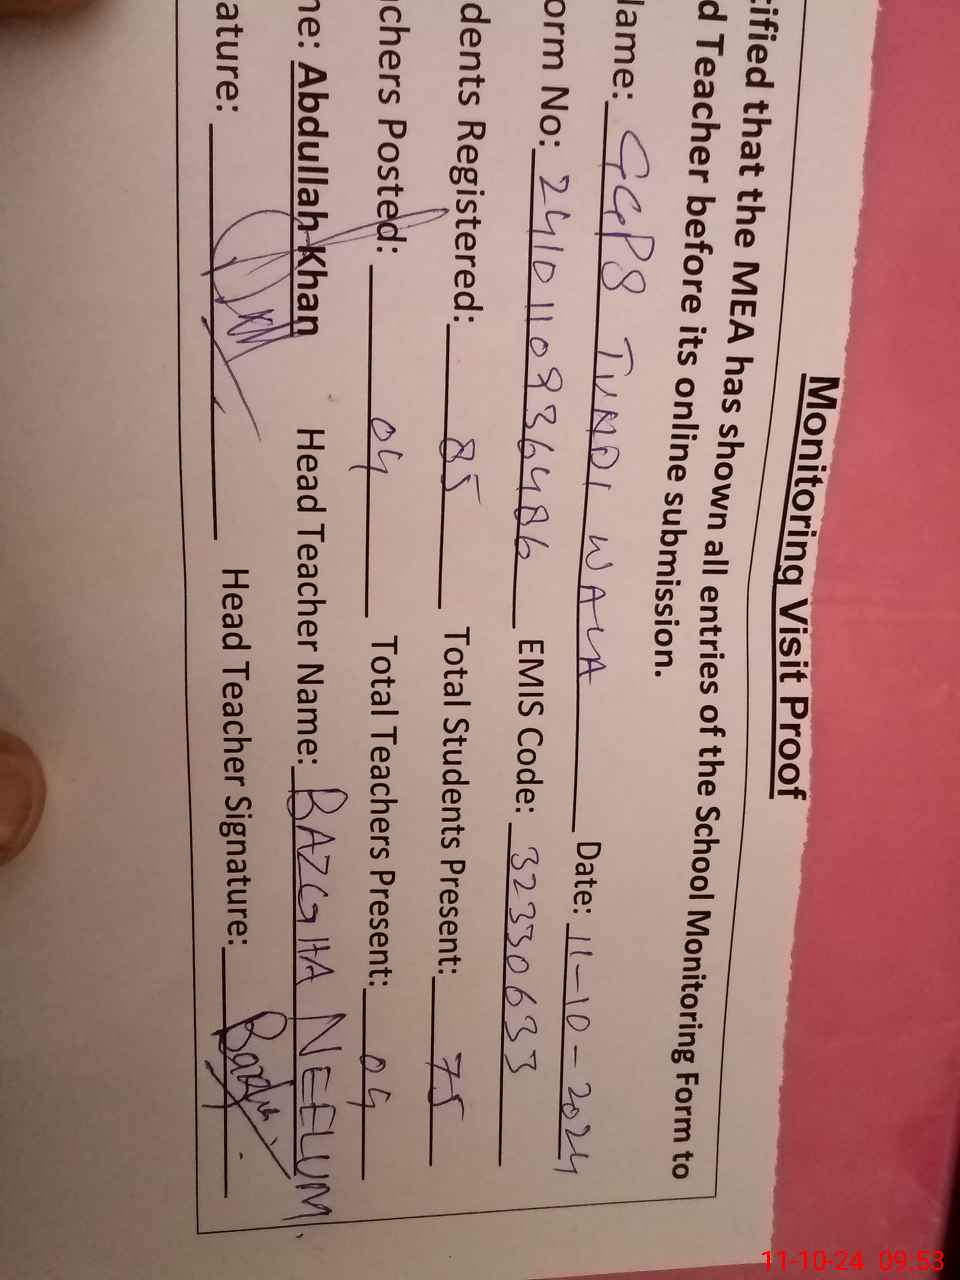 Monitoring Visit Proof
ified that the MEA has shown all entries of the School Monitoring Form to
d Teacher before its online submission.
Name: GGPS TUMDI WALA Date: 11-10-2024
orm No: 2410110936486 EMIS Code: 32330633
dents Registered: 85 Total Students Present: 75
chers Posted: 04 Total Teachers Present: 04
ne: Abdullah Khan Head Teacher Name: BAZGHA NEELUM
ature: Head Teacher Signature:
11-10-24 09:53